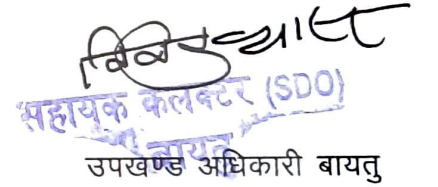 व्यास
सहायक कलेक्टर (SDO)
बायतु
उपखण्ड अधिकारी बायतु